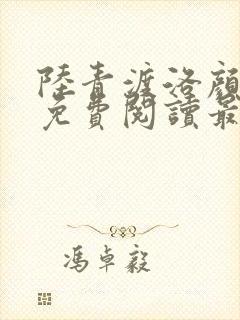 陸青漄洛顏
免費閱讀最
馮卓毅